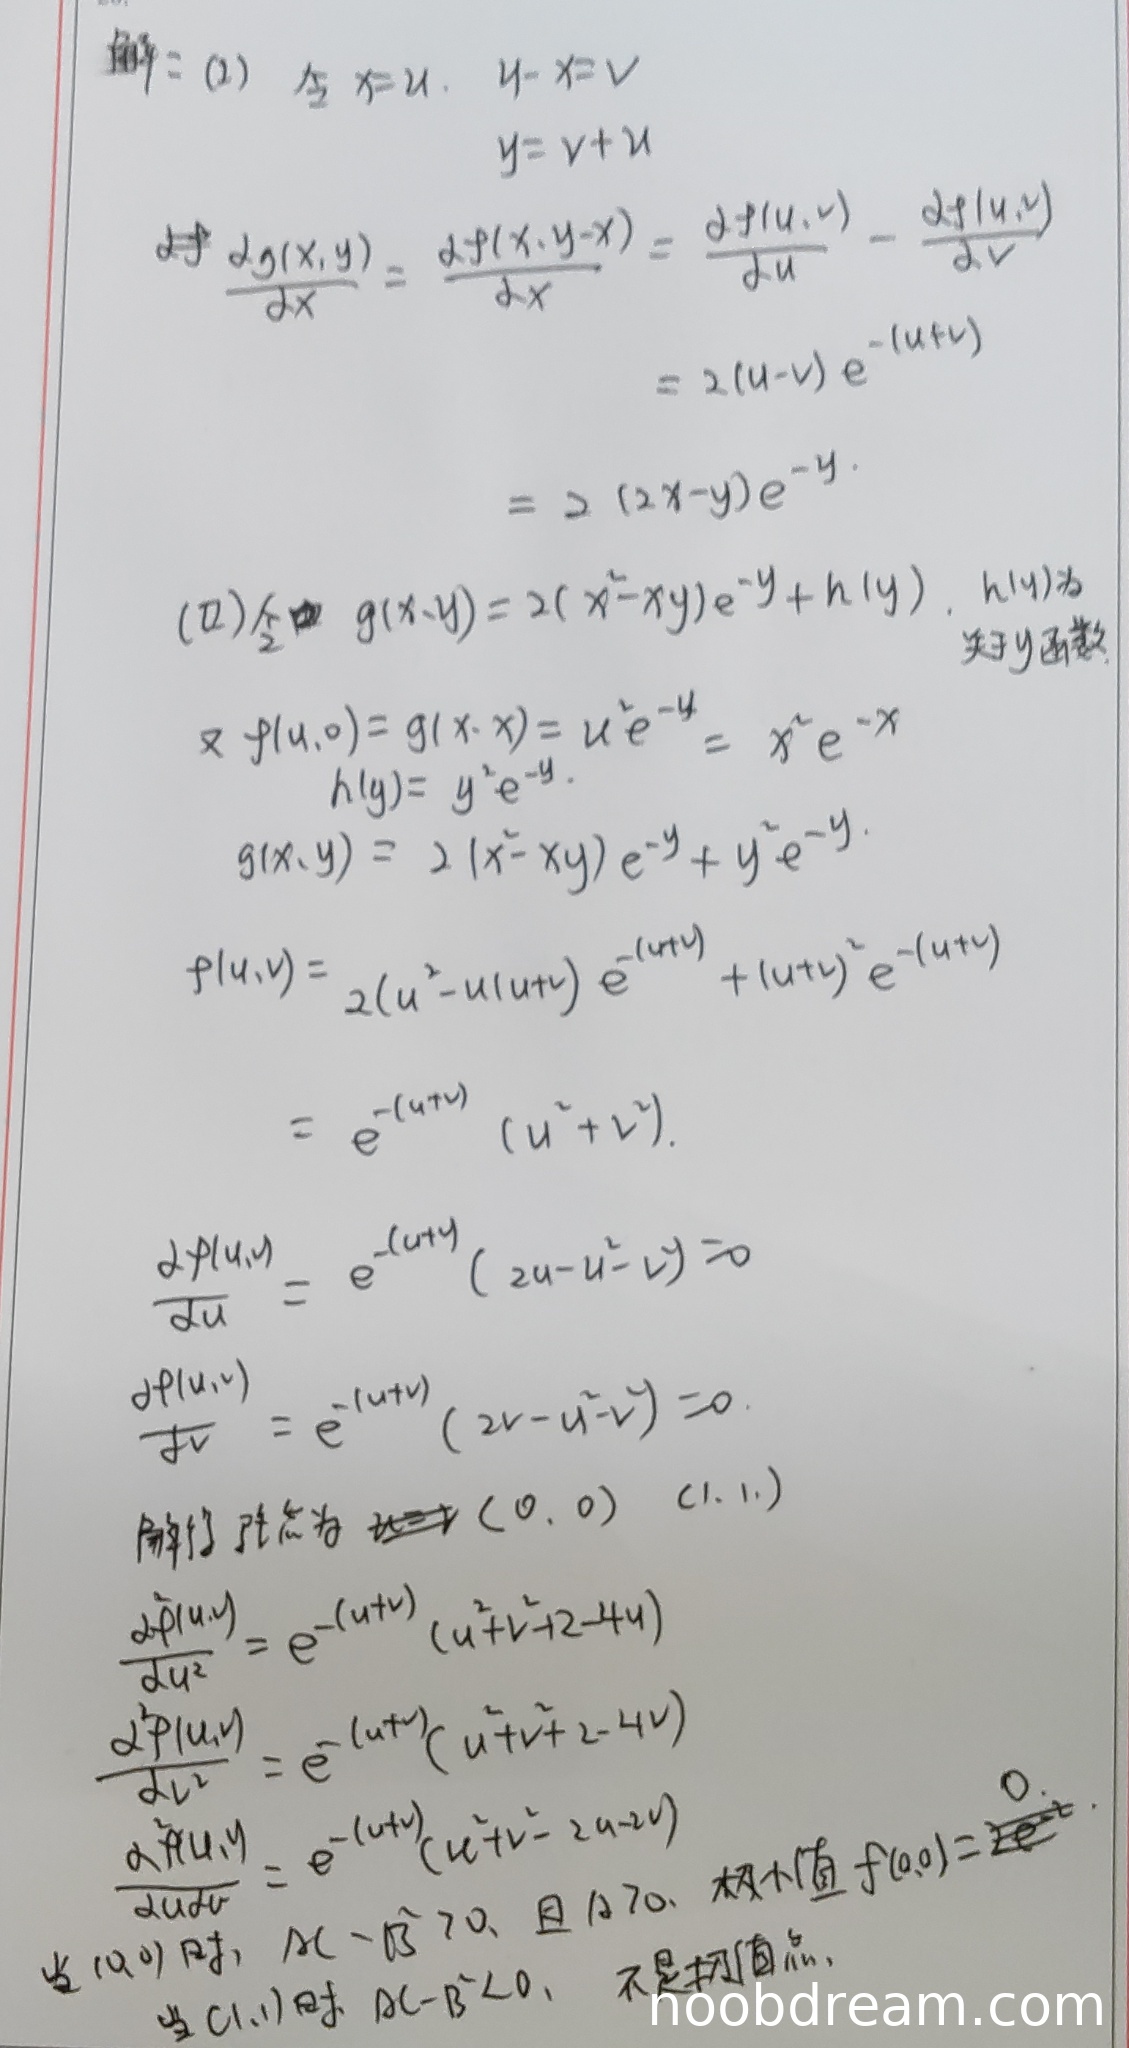 解: (1) 令 x=u. y-x=v
y=v+u
∂g(x,y)/∂x = ∂f(x,y-x)/∂x = ∂f(u,v)/∂u - ∂f(u,v)/∂v
= 2(u-v) e^{-(u+v)}
= 2(2x-y)e^{-y}.
(II) 令 g(x,y) = 2(x²-xy)e^{-y} + h(y), h(y)为
关于y函数
又 f(u,0) = g(x,x) = u²e^{-u} = x²e^{-x}
h(y) = y²e^{-y}.
g(x,y) = 2(x²-xy)e^{-y} + y²e^{-y}.
f(u,v) = 2(u²-u(u+v)) e^{-(u+v)} + (u+v)²e^{-(u+v)}
= e^{-(u+v)} (u²+v²).
∂f(u,v)/∂u = e^{-(u+v)} (2u-u²-v²)=0
∂f(u,v)/∂v = e^{-(u+v)} (2v-u²-v²)=0.
解得驻点为 (0,0) (1,1)
∂²f(u,v)/∂u² = e^{-(u+v)} (u²+v²+2-4u)
∂²f(u,v)/∂v² = e^{-(u+v)} (u²+v²+2-4v)
∂²f(u,v)/∂u∂v = e^{-(u+v)} (u²+v²-2u-2v)
当(0,0)时, AC-B²>0, 且A>0, 极小值 f(0,0)=0.
当(1,1)时 AC-B²<0, 不是极值点.
noobdream.com